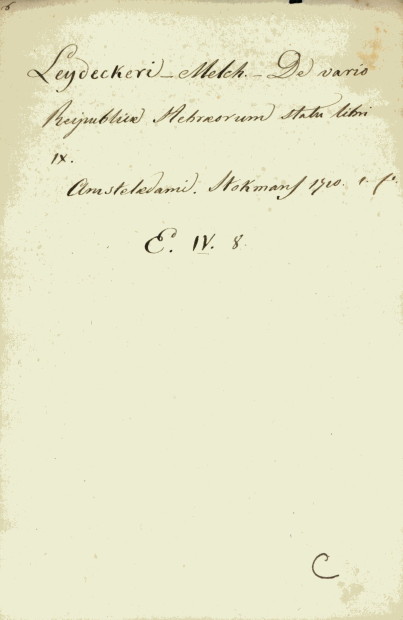 Leydeckeri - Melch. - De vario
Reipublicæ Hebræorum statu libri
IX.
Amstelædami. Stokmans 1710. 1. f.
E. IV. 8
C